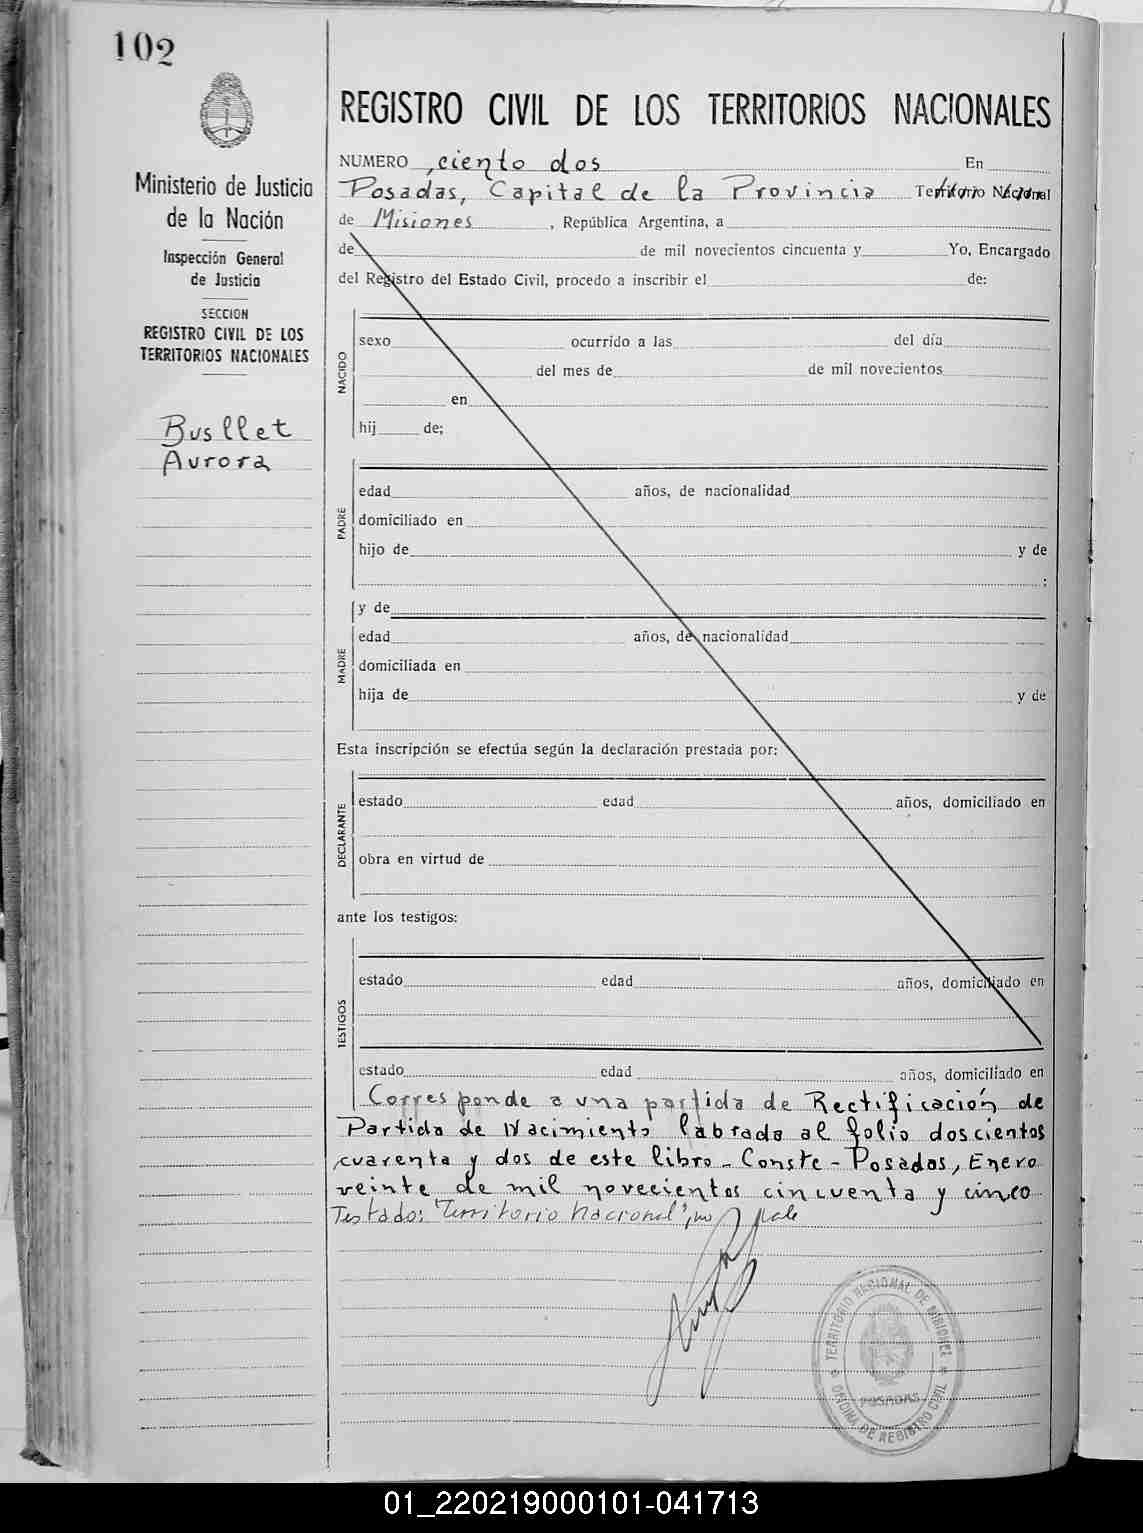 102
Ministerio de Justicia
de la Nación
Inspección General
de Justicia
SECCION
REGISTRO CIVIL DE LOS
TERRITORIOS NACIONALES
Busllet
Aurora
REGISTRO CIVIL DE LOS TERRITORIOS NACIONALES
NUMERO ciento dos En
Posadas, Capital de la Provincia Territorio Nacional
de Misiones, República Argentina, a
de de mil novecientos cincuenta y Yo, Encargado
del Registro del Estado Civil, procedo a inscribir el de:
NACIDO
sexo ocurrido a las del día
del mes de de mil novecientos
en
hij de;
PADRE
edad años, de nacionalidad
domiciliado en
hijo de y de
:
y de
MADRE
edad años, de nacionalidad
domiciliada en
hija de y de
Esta inscripción se efectúa según la declaración prestada por:
DECLARANTE
estado edad años, domiciliado en
obra en virtud de
ante los testigos:
TESTIGOS
estado edad años, domiciliado en
estado edad años, domiciliado en
Corresponde a una partida de Rectificación de
Partida de Nacimiento labrada al folio doscientos
cuarenta y dos de este libro - Conste - Posadas, Enero
veinte de mil novecientos cincuenta y cinco
Testado: "Territorio Nacional", no vale
TERRITORIO NACIONAL DE MISIONES
POSADAS
OFICINA DE REGISTRO CIVIL
01_220219000101-041713